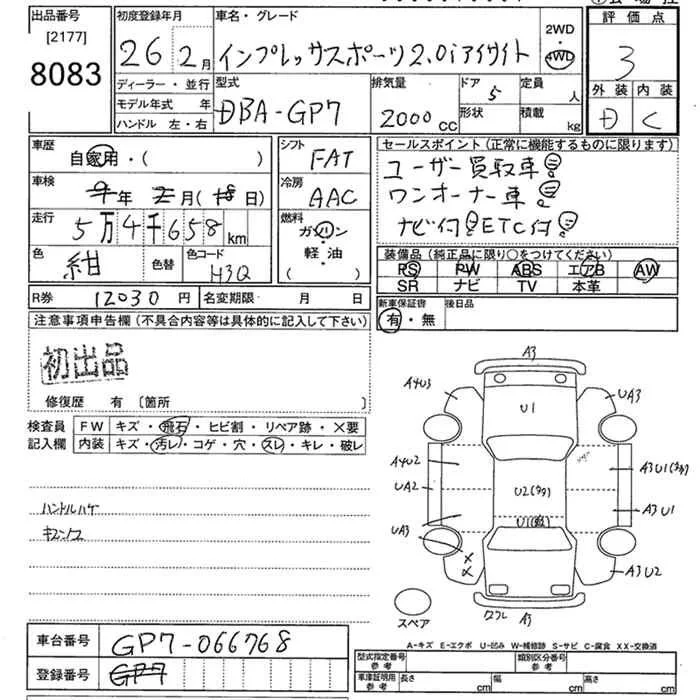 出品番号
[2177]
8083
初度登録年月
26 2月
車名・グレード
インプレッサスポーツ2.0iアイサイト
2WD
・
4WD
評価点
3
外装 内装
D C
ディーラー・並行
モデル年式 年
ハンドル 左・右
型式
DBA-GP7
排気量
2000 cc
ドア 5
形状
定員 人
積載 kg
車歴
自家用・( )
車検
年 月( 日)
走行
5万4千658 km
色
紺
色替
色コード
H3Q
シフト
FAT
冷房
AAC
燃料
ガソリン
・
軽油
( )
セールスポイント(正常に機能するものに限ります)
ユーザー買取車
ワンオーナー車
ナビ付 ETC付
装備品(純正品に限り○をつけてください)
PS PW ABS エアB AW
SR ナビ TV 本革
R券 12030円 名変期限 月 日
新車保証書
有・無
後日品
注意事項申告欄(不具合内容等は具体的に記入して下さい)
初出品
修復歴 有 〔箇所 〕
検査員
記入欄
FW キズ・飛石・ヒビ割・リペア跡・×要
内装 キズ・汚レ・コゲ・穴・スレ・キレ・破レ
ハンドルハゲ
A3
A4U3
U1
UA3
A4U2
UA2
U2(多)
A3U1(多)
A3U1
UA3
×
×
A3U2
ワフレ A3
スペア
車台番号
GP7-066768
登録番号
GP7
A-キズ E-エクボ U-凹み W-補修跡 S-サビ C-腐食 XX-交換済
型式指定番号
参考
類別区分番号
参考
車庫証明用
参考
長さ cm 幅 cm 高さ cm